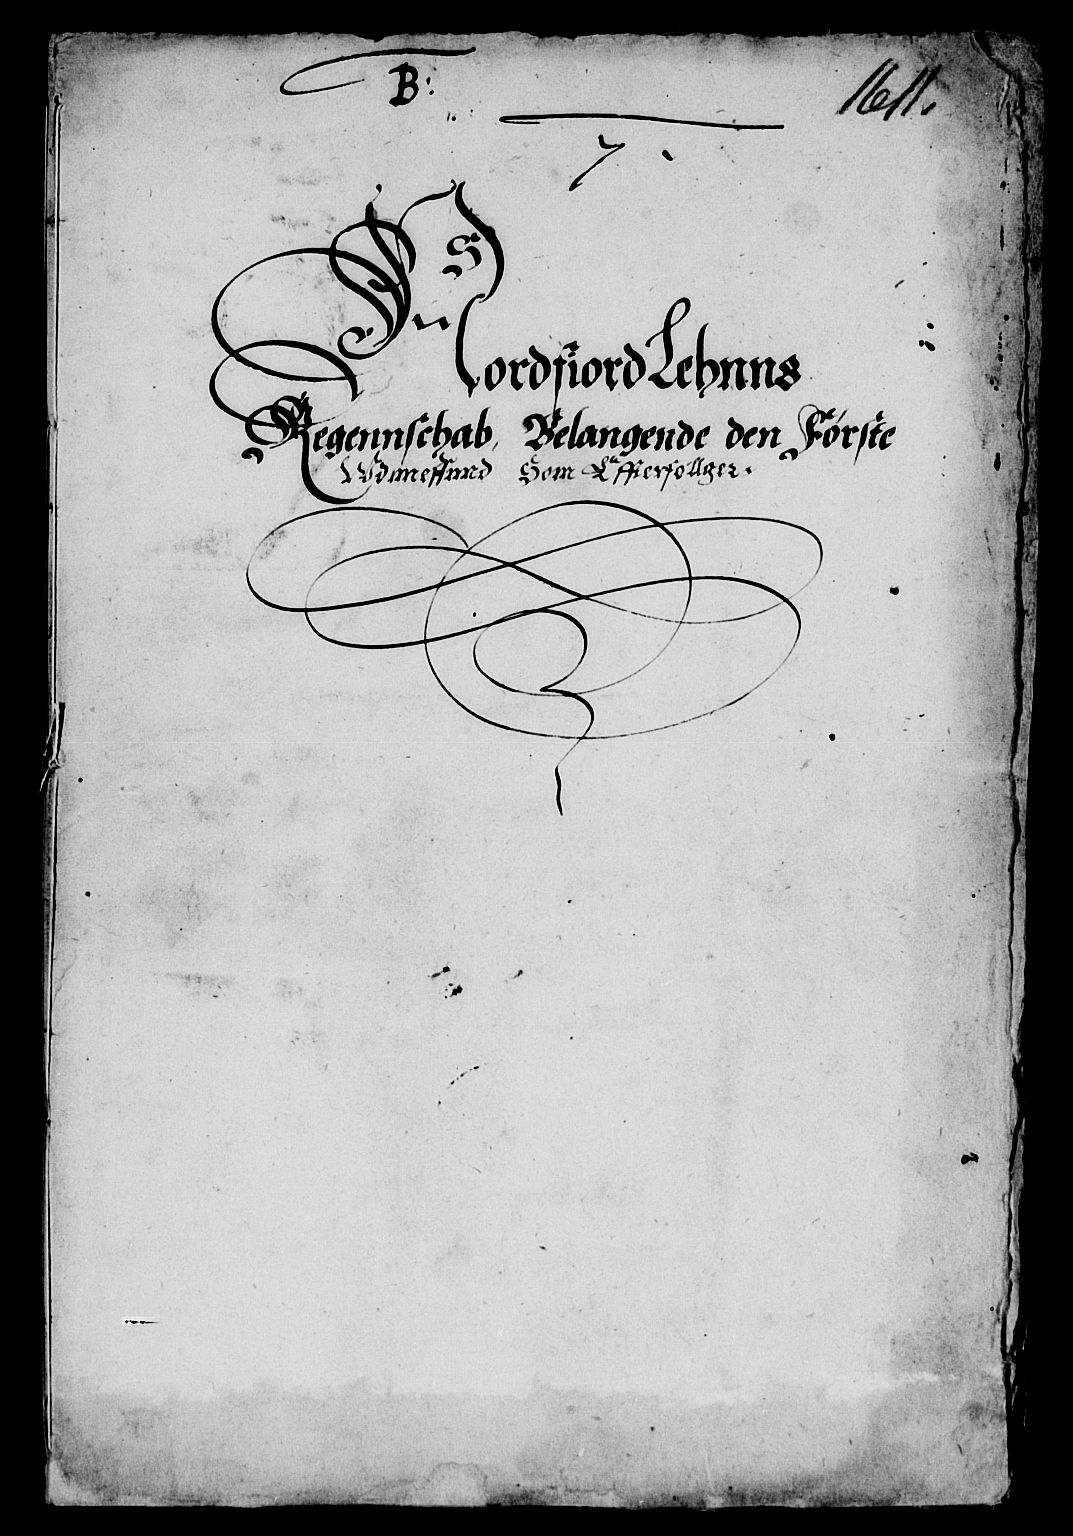 B:
1611.
7
Nordfiord Lehnns
Regennschab, Belangende den Første
Som Effterfollger.